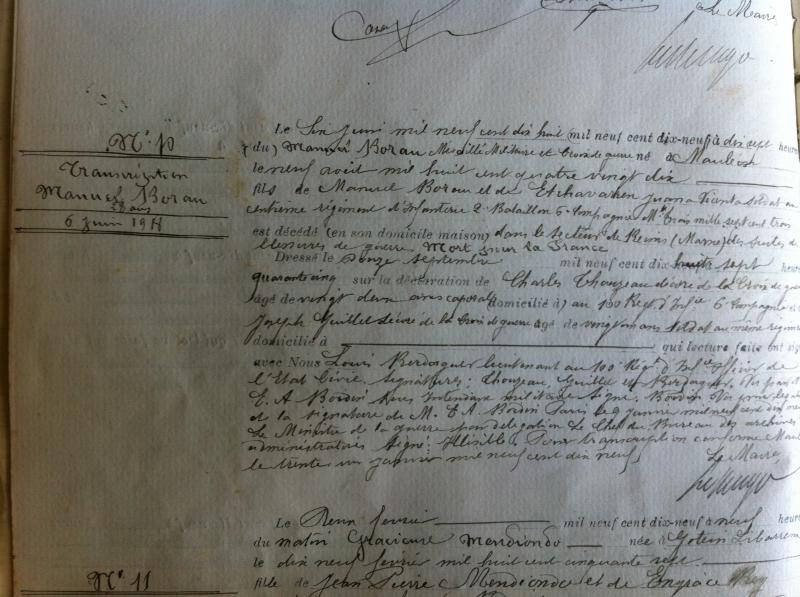 Le Maire
N° 10
Transcription
Manuel Borau
6 juin 1918
Le Six juin mil neuf cent dix huit mil neuf cent dix-neuf à dix sept heures
du) Manuel Borau Médaillé Militaire et Croix de guerre né à Mauléon
le neuf août mil huit cent quatre vingt dix
fils de Manuel Borau et de Etchavarren Juana soldat au
centième régiment d'Infanterie 2e Bataillon 6e Compagnie Mle trois mille sept cent trois
est décédé (en son domicile maison) dans le secteur de Reims (Marne) des suites de
blessures de guerre Mort pour la France
Dressé le douze septembre mil neuf cent dix-huit à sept heures
quarante cinq sur la déclaration de Charles Thouzeau décoré de la Croix de guerre
âgé de vingt deux ans caporal domicilié à) au 100 Régt d'Infie 6e Compagnie et de
Joseph Guillet décoré de la Croix de guerre âgé de vingt un ans soldat au même régiment
domicilié à qui lecture faite ont signé
avec Nous Louis Berdoguer lieutenant au 100e Régt d'Infie officier de
l'Etat Civil. Signatures: Thouzeau, Guillet et Berdoguer. Vu par
E. A. Boidin Sous Intendant militaire Signé. Boidin. Vu pour légalisation
de la signature de M. E. A. Boidin Paris le 9 janvier mil neuf cent dix neuf
Le Ministre de la guerre par délégation Le Chef du Bureau des archives
administratives Signé: Illisible. Pour transcription conforme Mauléon
le trente un janvier mil neuf cent dix neuf
Le Maire,
Le Deux février mil neuf cent dix-neuf à neuf heures
du matin Gracieuse Mendiondo née à Gotein Libarrenx
le dix neuf février mil huit cent cinquante sept
N° 11
fille de Jean Pierre Mendiondo et de Engrace